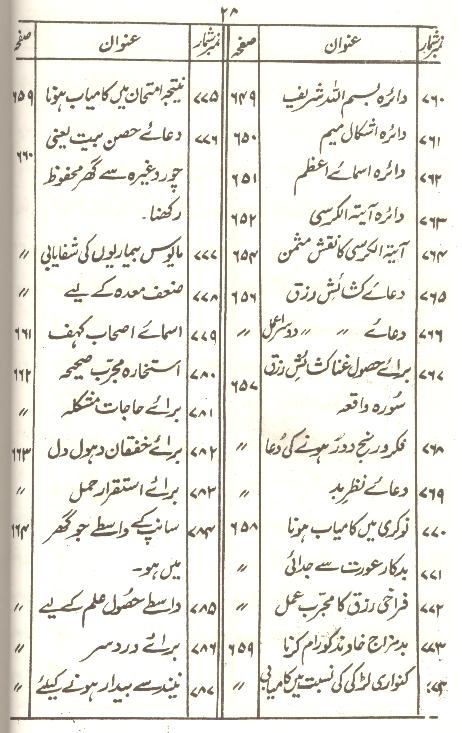 ۲۸
نمبر شمار عنوان صفحہ
۷۶۰ دائرہ بسم اللہ شریف ۶۴۹
۷۶۱ دائرہ اشکال میم ۶۵۰
۷۶۲ دائرہ اسمائے اعظم ۶۵۱
۷۶۳ دائرہ آیۃ الکرسی ۶۵۲
۷۶۴ آیۃ الکرسی کا نقش مثمن ۶۵۴
۷۶۵ دعائے کشائش رزق ۶۵۶
۷۶۶ دعائے 〃 〃 دوسرا عمل 〃
۷۶۷ برائے حصول غنا کشائش رزق ۶۵۷
سُورہ واقعہ
۷۶۸ فکر و رنج دور ہونے کی دُعا 〃
۷۶۹ دعائے نظرِ بد 〃
۷۷۰ نوکری میں کامیاب ہونا ۶۵۸
۷۷۱ بدکار عورت سے جدائی 〃
۷۷۲ فراخی رزق کا مجرّب عمل 〃
۷۷۳ بدمزاج خاوند کو رام کرنا ۶۵۹
کنواری لڑکی کی نسبت میں کامیابی 〃
نمبر شمار عنوان صفحہ
۷۷۵ نتیجہ امتحان میں کامیاب ہونا ۶۵۹
۷۷۶ دعائے حصن بیت یعنی ۶۶۰
چور وغیرہ سے گھر محفوظ
رکھنا۔
۷۷۷ مایوس بیماریوں کی شفایابی 〃
۷۷۸ ضعف معدہ کے لیے 〃
۷۷۹ اسمائے اصحاب کہف ۶۶۱
۷۸۰ استخارہ مجرّب صحیحہ ۶۶۲
۷۸۱ برائے حاجات مشکلہ 〃
۷۸۲ برائے خفقان و ہول دل ۶۶۳
۷۸۳ برائے استقرار حمل 〃
۷۸۴ سانپ کے واسطے جو گھر ۶۶۴
میں ہو۔
۷۸۵ واسطے حصُول علم کے لیے 〃
۷۸۶ برائے درد سر 〃
۷۸۷ نیند سے بیدار ہونے کیلئے 〃